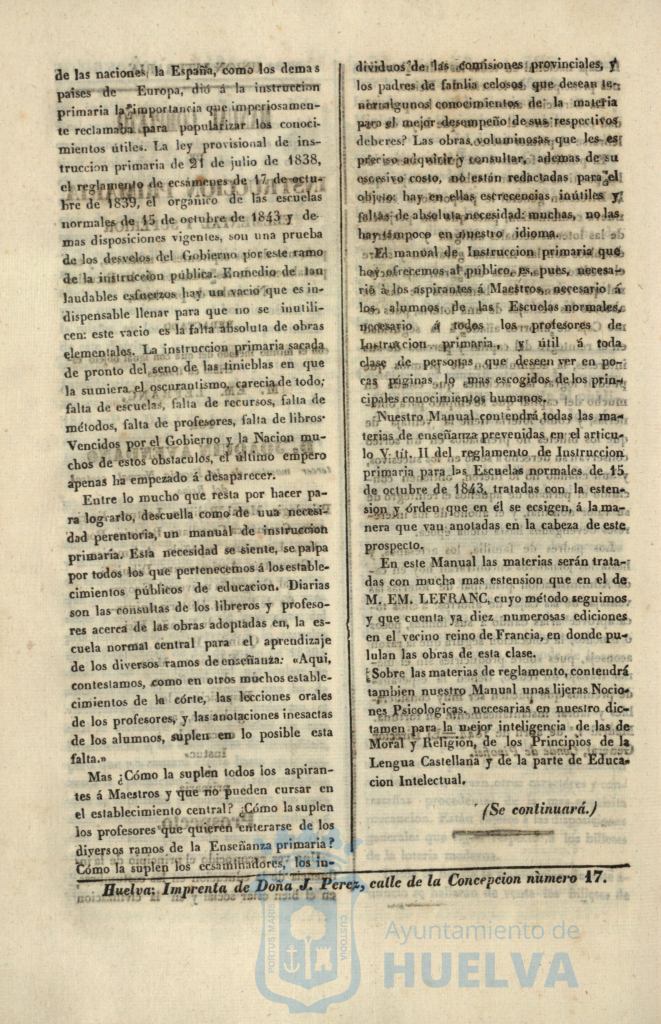 de las naciones, la España, como los demas
paises de Europa, dió á la instruccion
primaria la importancia que imperiosamen-
te reclamaba para popularizar los conoci-
mientos útiles. La ley provisional de ins-
truccion primaria de 21 de julio de 1838,
el reglamento de ecsámenes de 17 de octu-
bre de 1839, el orgánico de las escuelas
normales de 15 de octubre de 1843 y de-
mas disposiciones vigentes, son una prueba
de los desvelos del Gobierno por este ramo
de la instruccion pública. Enmedio de tan
laudables esfuerzos hay un vacio que es in-
dispensable llenar para que no se inutili-
cen: este vacio es la falta absoluta de obras
elementales. La instruccion primaria sacada
de pronto del seno de las tinieblas en que
la sumiera el oscurantismo, carecia de todo;
falta de escuelas, falta de recursos, falta de
métodos, falta de profesores, falta de libros.
Vencidos por el Gobierno y la Nacion mu-
chos de estos obstaculos, el último empero
apenas ha empezado á desaparecer.
Entre lo mucho que resta por hacer pa-
ra lograrlo, descuella como de una necesi-
dad perentoria, un manual de instruccion
primaria. Esta necesidad se siente, se palpa
por todos los que pertenecemos á los estable-
cimientos públicos de educacion. Diarias
son las consultas de los libreros y profeso-
res acerca de las obras adoptadas en, la es-
cuela normal central para el aprendizaje
de los diversos ramos de enseñanza: «Aqui,
contestamos, como en otros muchos estable-
cimientos de la córte, las lecciones orales
de los profesores, y las anotaciones inesactas
de los alumnos, suplen en lo posible esta
falta.»
Mas ¿Cómo la suplen todos los aspiran-
tes á Maestros y que no pueden cursar en
el establecimiento central? ¿Cómo la suplen
los profesores que quieren enterarse de los
diversos ramos de la Enseñanza primaria?
Cómo la suplen los ecsaminadores, los in-
dividuos de las comisiones provinciales, y
los padres de familia celosos que desean te-
ner algunos conocimientos de la materia
para el mejor desempeño de sus respectivos
deberes? Las obras voluminosas que les es
preciso adquirir y consultar, ademas de su
escesivo costo, no están redactadas para el
objeto: hay en ellas escrecencias inútiles y
faltas de absoluta necesidad: muchas, no las
hay tampoco en nuestro idioma.
El manual de Instruccion primaria que
hoy ofrecemos al público, es, pues, necesa-
rio á los aspirantes á Maestros, necesario á
los alumnos de las Escuelas normales,
necesario á todos los profesores de
Instruccion primaria, y útil á toda
clase de personas que deseen ver en po-
cas páginas, lo mas escogidos de los prin-
cipales conocimientos humanos.
Nuestro Manual contendrá todas las ma-
terias de enseñanza prevenidas en el articu-
lo V. tít. II del reglamento de Instruccion
primaria para las Escuelas normales de 15
de octubre de 1843, tratadas con la esten-
sion y órden que en él se ecsigen, á la ma-
nera que van anotadas en la cabeza de este
prospecto.
En este Manual las materias serán trata-
das con mucha mas estension que en el de
M. EM. LEFRANC, cuyo método seguimos
y que cuenta ya diez numerosas ediciones
en el vecino reino de Francia, en donde pu-
lulan las obras de esta clase.
Sobre las materias de reglamento, contendrá
tambien nuestro Manual unas lijeras Nocio-
nes Psicologicas. necesarias en nuestro dic-
tamen para la mejor inteligencia de las de
Moral y Religion, de los Principios de la
Lengua Castellana y de la parte de Educa-
cion Intelectual.
(Se continuará.)
Huelva: Imprenta de Doña J. Perez, calle de la Concepcion número 17.
PORTUS MARIS
CUSTODIA
Ayuntamiento de
HUELVA